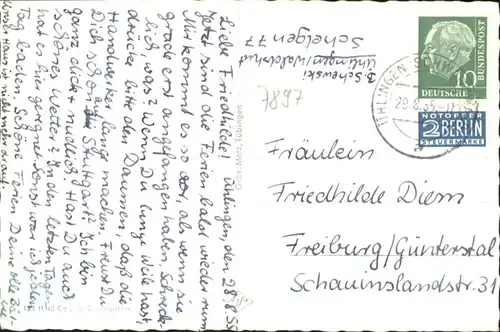 Liebe Friedhilde! Ühlingen, den 28.8.55
Jetzt sind die Ferien bald wieder rum,
Mir kommt es so vor, als wenn sie
grade erst angefangen haben. Schreck-
lich was? Wenn Du lange Weile hast,
drücke bitte den Daumen, daß die
Handwerker lange machen. Freust Du
Dich schon auf Stuttgart? Ich bin
ganz dick + nudlich. Hast Du auch
schönes Wetter? In den letzten Tagen
hat es hier geregnet sonst war es jeden
Tag baden. Schöne Ferien Deine
Unser Haus ist
B. Schewski
Ühlingen/Waldshut
Schelgen 77
7897
Gebr. Metz, Tübingen
10
DEUTSCHE BUNDESPOST
ÜHLINGEN
29.8.55
NOTOPFER
2 BERLIN
STEUERMARKE
Fräulein
Friedhilde Diem
Freiburg/Günterstal
Schauinslandstr. 31